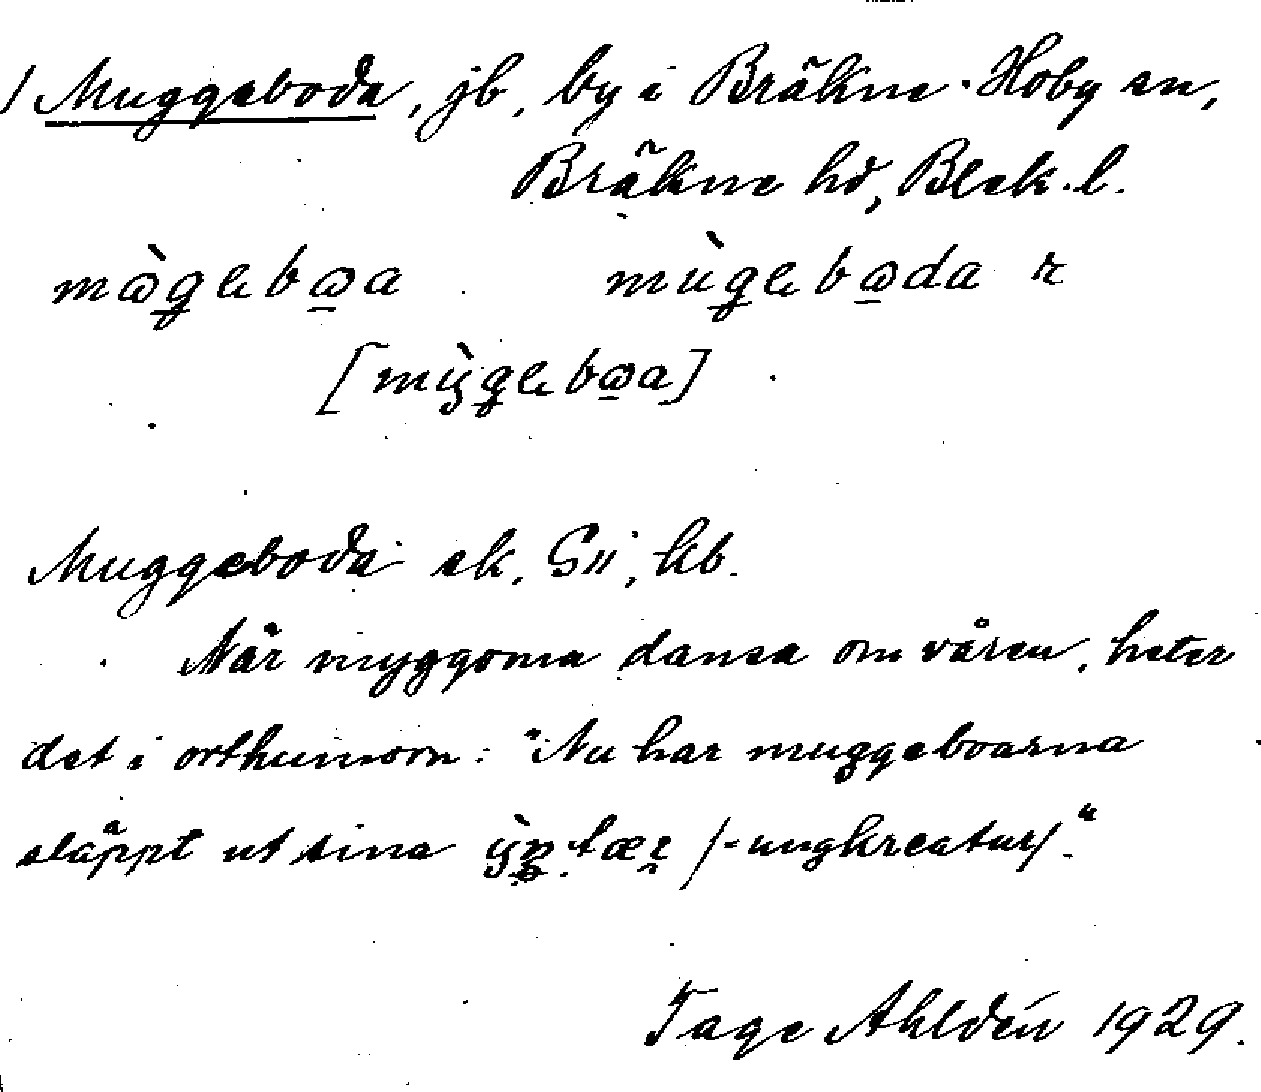 / Muggeboda, jb, by i Bräkne-Hoby sn,
Bräkne hd, Blek. l.
mὼgeboa mùgeboda r
[mỳgeboa]
Muggeboda ek, GSii, kb.
När myggorna dansa om våren, heter
det i orthumorn: "Nu har muggeboarna
släppt ut sina /=ungkreatur/."
Tage Ahldén 1929.